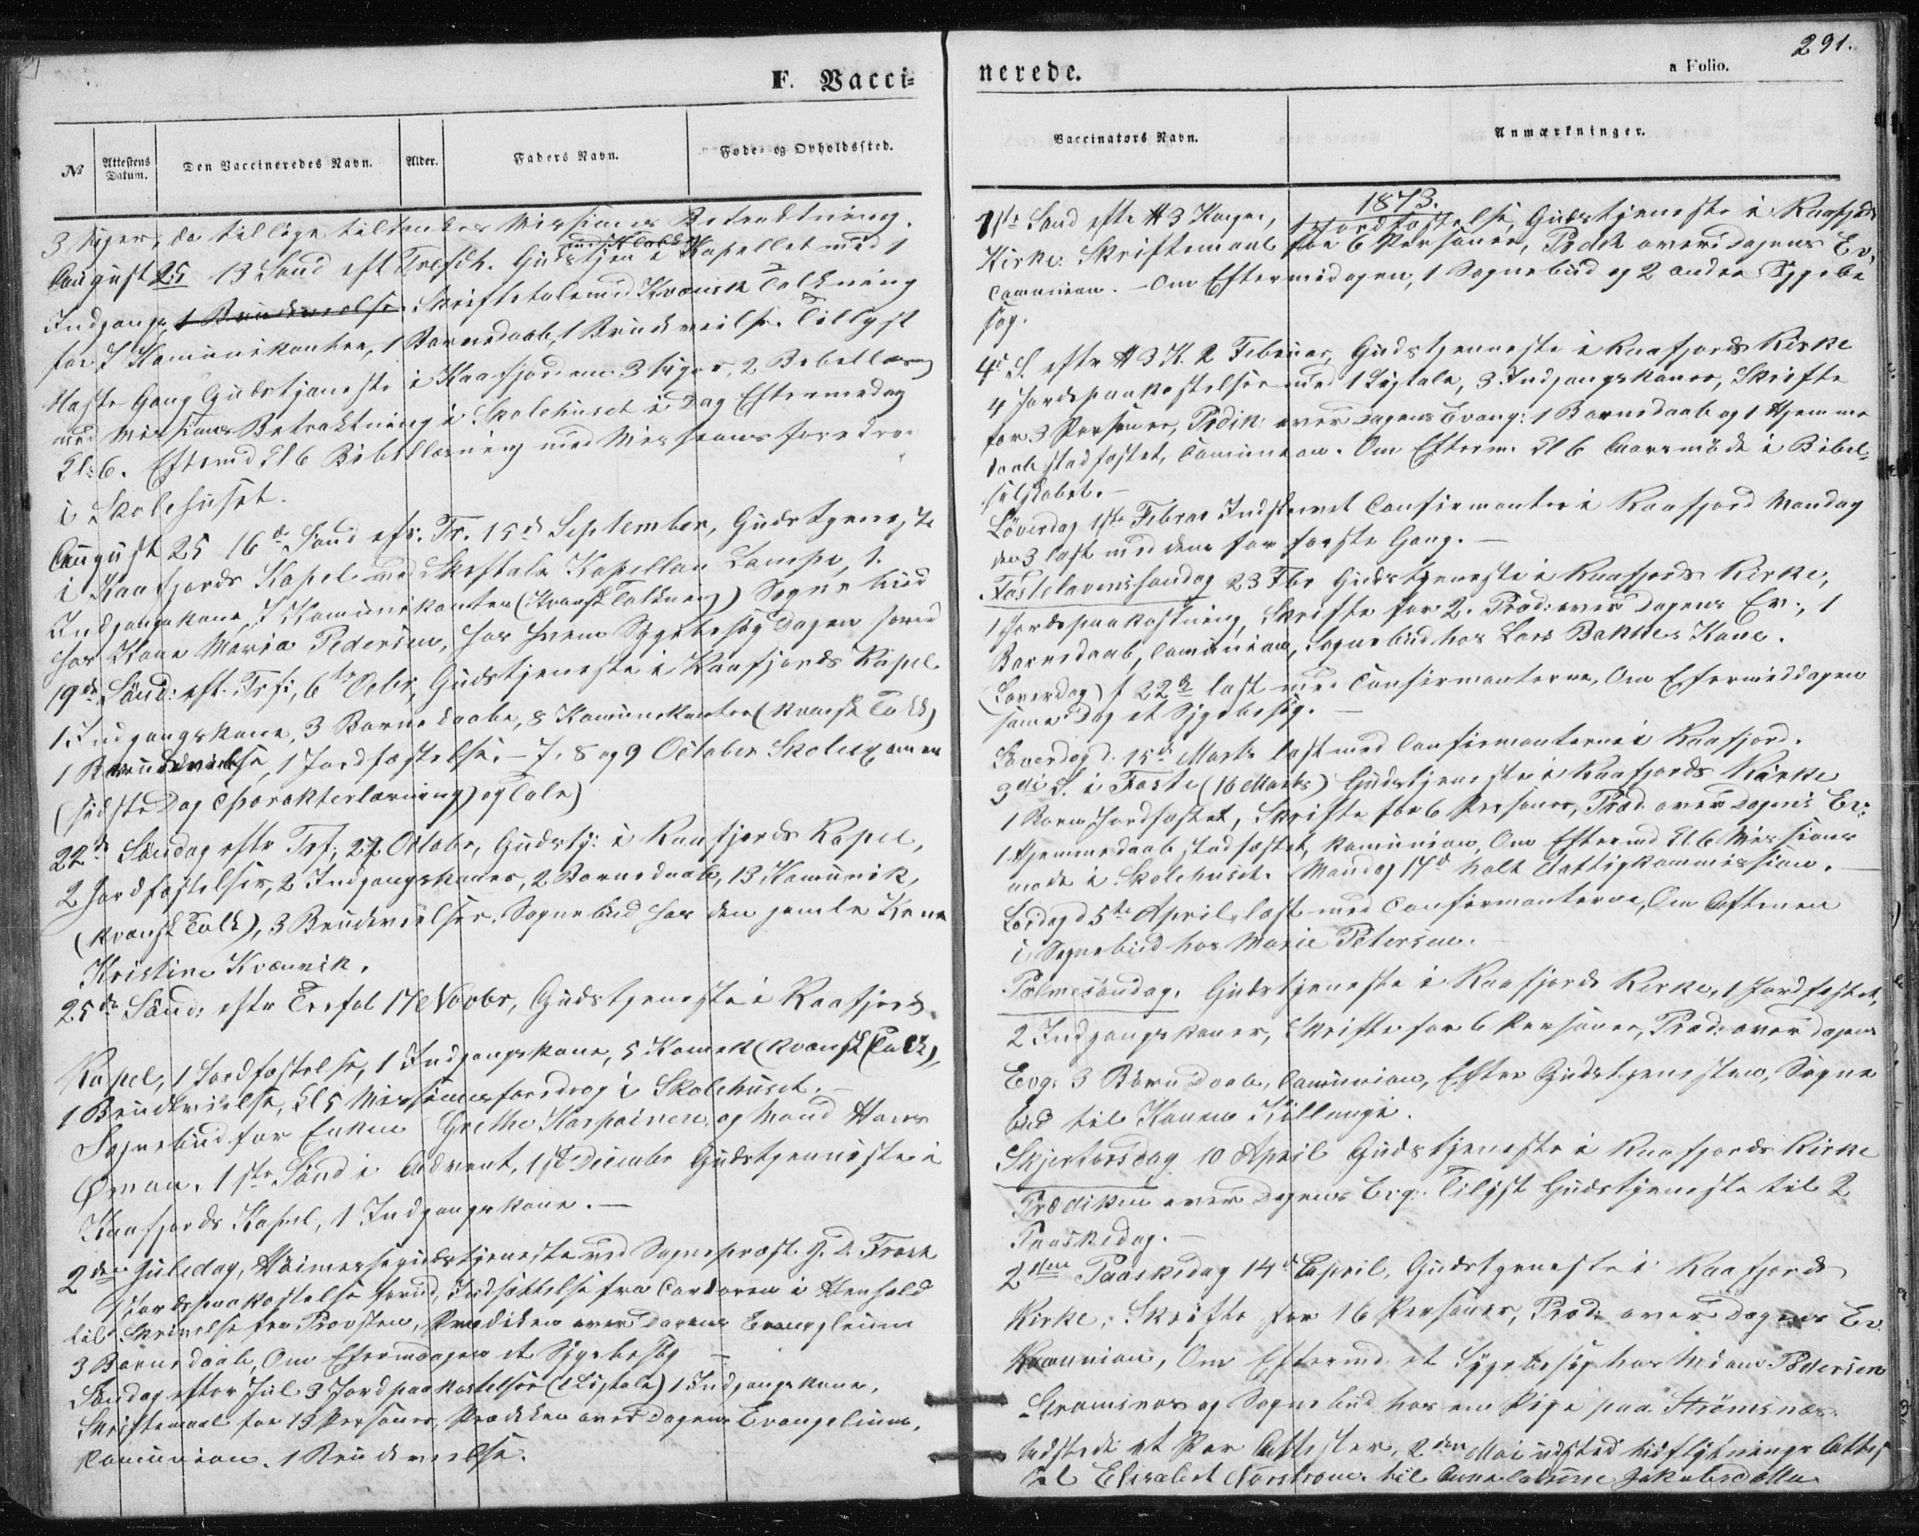 291.
F. Vacci-
nerede.
a Folio.
No
Attestens Datum.
Den Vaccineredes Navn.
Alder.
Faders Navn.
Føde- og Opholdssted.
3 Uger, da tillige tiltænkes Missions Betraktning.
August 25 13 Sønd eft Trefdh. Gudstjen i Kapellet med 1
Indgangs, 1 Brudevielse Skriftetale med Kvænsk Tolkning
for 7 Komunikanter, 1 Barnedaab, 1 Brudevielse. Tillyst
Næste Gang Gudstjeneste i Kaafjord om 3 Uger, 2 Bibellæsning
med Missions Betraktning i Skolehuset i Dag Eftermedag
Kl: 6. Eftermd Kl 6 Bibellæsning med Missions foredra
i Skolehuset.
August 25 16de Sønd eft. Tr. 15de September, Gudstjeneste
i Kaafjords Kapel med Skrftale Kapellan Lampe, 1.
Indgangskone 7 Komunikanter (Kvænsk Tolkning) Sogne bud
hos Kone Maria Pedersen, hos hvem Sygebesøg Dagen forud
19de Sønd: eft. Trf:, 6te Octbr, Gudstjeneste i Kaafjords Kapel
1 Indgangskone, 3 Barnedaabe, 8 Komunikanter (Kvænsk Tolk)
1 Brudevielse, 1 Jordfæstelse. – 7, 8 og 9 October Skolexamen
(sidste Dag Charakterlæsning) og Tale)
22de Søndag eftr Trf; 27 Octobr, Gudstj: i Kaafjords Kapel,
2 Jordfæstelser, 2 Indgangskoner, 2 Barnedaab, 13 Komunik,
(Kvænsk Tolk), 3 Brudevielser. Sognebud hos den gamle Kone
Kristine Kvænvik.
25de Sønd: eftr Trefol 17 Novbr, Gudstjeneste i Kaafjord
Kapel, 1 Jordfæstelse, 1 Indgangskone, 5 Komuk (Kvænsk Tolk),
1 Brudevielse, Kl 5 Missionsforedrag i Skolehuset. –
Sognebud for Enken Grethe Karpainen, og Mand Hans
Øman. 1ste Sønd i Advent, 1ste Decembr Gudstjenneste i
Kaafjords Kapel, 1 Indgangskone. –
2den Juledag, Høimessegudstjeneste ved Sognepræst J. D. Frost
1 Jordspaakastelse forud, Indsættelse fra Cordoren i Henhold
til Skrivelse fra Provsten, Prædiken over Dagens Evangelium
3 Barnedaab, Om Eftermdagen et Sygebesøg –
Søndag efter Jul 3 Jordpaakastelser (1 Ligtale) 1 Indgangskone,
Skriftemaal for 13 Personer, Prædiken over Dagens Evangelium,
Comunion. 1 Brudevielse.
Vaccinators Navn.
Anmærkninger.
1873.
1ste Sønd efter H 3 Konger, 1 Jordfæstelse, Gudstjeneste i Kaafjords
Kirke: Skriftemaal for 6 Personer, Prædik over Dagens Ev,
Comunion. – Om Eftermidagen, 1 Sognebud og 2 andre Sygebe
søg.
4de S. eftr H 3 K. 2 Februar, Gudstjenneste i Kaafjords Kirke
4 Jordspaakastelser med 1 Ligtale, 3 Indgangskoner, Skrifte
for 3 Personer, Prdik: over Dagens Evang: 1 Barnedaab og 1 Hjemme
daab stadfæstet, Comunion. Om Efterm. Kl 6 Aarsmøde i Bibel-
selskabet. –
Löverdag 1ste Februar Indskrevet Confirmanter i Kaafjord Mandag
den 3 læst med dem for første Gang. –
Fastelavenssøndag 23 Fbr Gudstjeneste i Kaafjords Kirke,
1 Jordspaakastning, Skrifte for 2. Præd: over Dagens Ev., 1
Barnedaab, Comunion, Sognebud hos Lars Bakkes Kone.
(Løverdag) d 22de læst med Confirmanterne, Om Eftermiddagen
samme Dag et Sygebesøg. –
Løverdag d. 15de Marts læst med Confirmanterne i Kaafjord.
3die S. i Faste (16 Marts) Gudstjeneste i Kaafjords Kirke
1 Barn Jordfæstet, Skrifte for 6 Personer, Præd. over Dagens Ev:
1 Hjemmedaab stadfæstet, Komunion, Om Eftermd Kl 6 Missions
møde i Skolehuset. Mandag 17de holdt Fattigkommission. –
Lørdag d 5te April, læst med Confirmanterne, Om Aftenen
i Sognebud hos Marie Petersen. –
Palmesøndag. Gudstjeneste i Kaafjords Kirke, 1 Jordfæstet,
2 Indgangskoner, Skrifte for 6 Personer, Præd: over Dagens
Evg: 3 Børn Daab, Comunion, Efter Gudstjenesten, Sogne
bud til Konen Killengi.
Skjertorsdag 10 April Gudstjeneste i Kaafjords Kirke
Prædiken over Dagens Evg: Tillyst Gudstjeneste til 2
Paaskedag. –
2den Paaskedag 14de April, Gudstjeneste i Kaafjords
Kirke: Skrifte for 16 Personer, Præd: over Dagens Ev.
Komunion, Om Eftermd. et Sygebesøg hos Pedersen
Strømsnes og Sognebud hos en Pige paa Strømsnæs.
Udstedt et Par Attester, 2den Mai udsted Udflytnings Attest
til Elisabet Norstrøm til Jakobsdatter